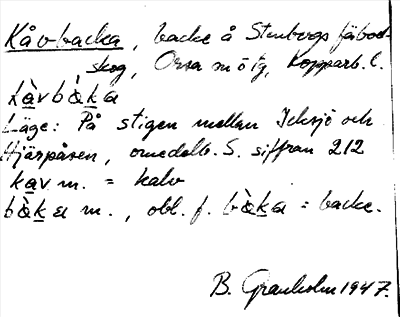 Kåvbacka, backe å Stenbergs fäbod-
skog, Orsa m ö tg, Kopparb. l.
kàvbàka
Läge: På stigen mellan Icksjö och
Hjärpåsen, omedelb. S. siffran 212
kav m. = kalv
bàka m., obl. f. bàka = backe.
B. Granholm 1947.